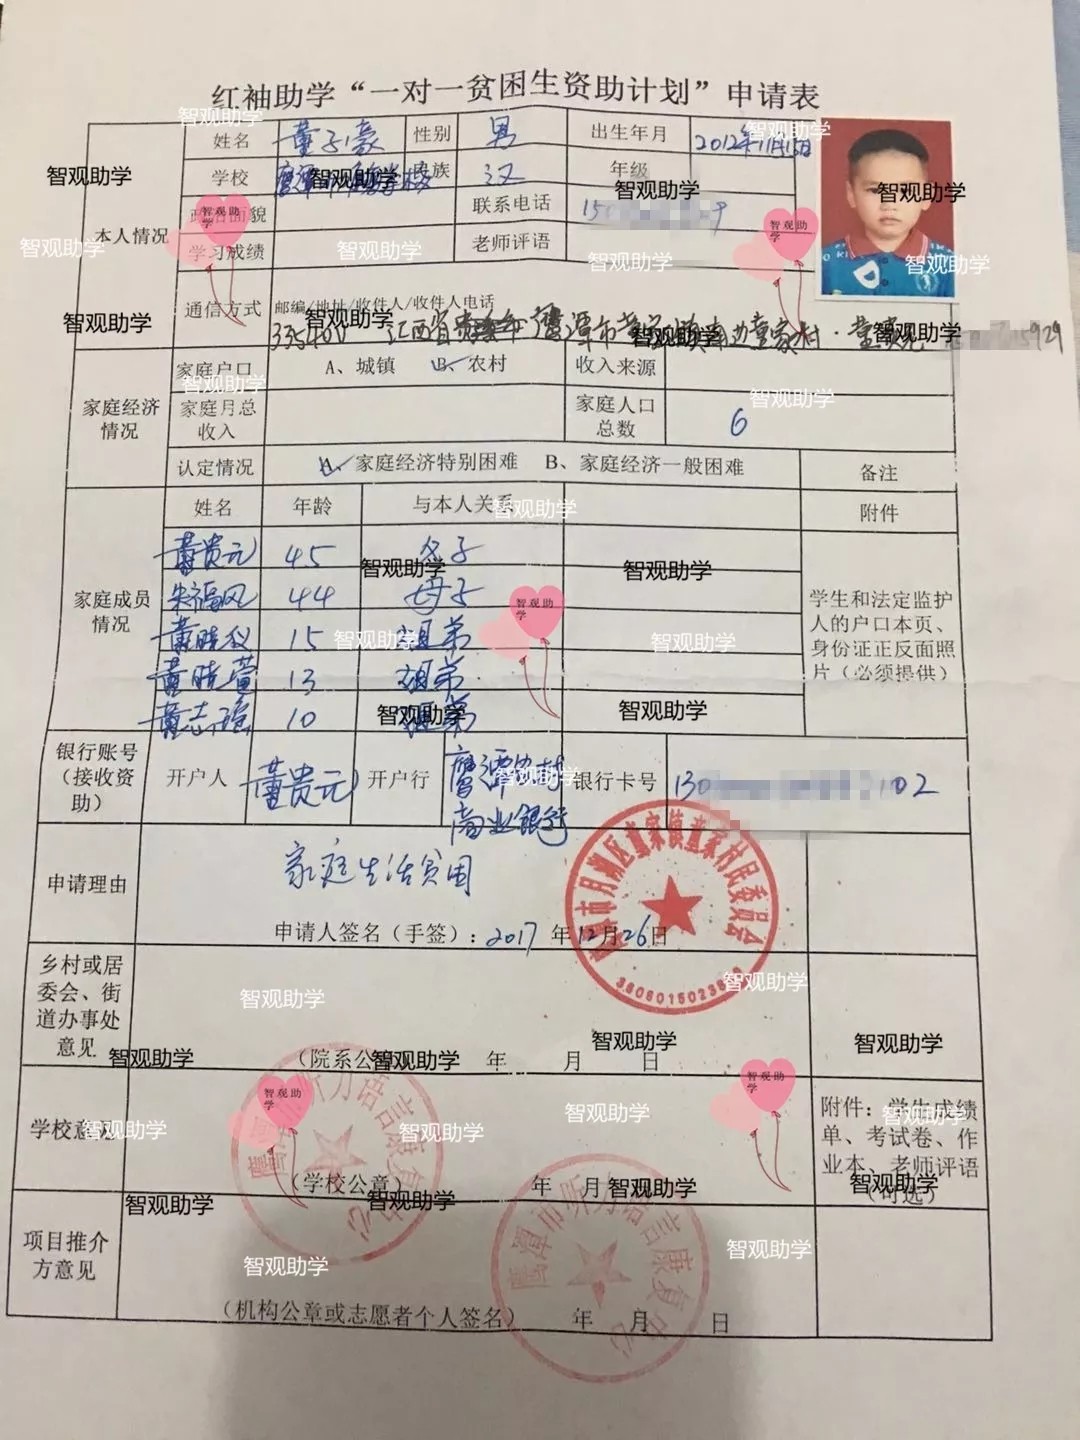 红袖助学“一对一贫困生资助计划”申请表
本人情况
姓名 董子豪 性别 男 出生年月 2012年11月15日
学校 民族 汉 年级
政治面貌 联系电话 15 9
学习成绩 老师评语
通信方式 邮编/地址/收件人/收件人电话
335400 江西省 鹰潭市 董家村 董贵元 5929
家庭经济情况
家庭户口 A、城镇 B、农村 收入来源
家庭月总收入 家庭人口总数 6
认定情况 A、家庭经济特别困难 B、家庭经济一般困难 备注
家庭成员情况
姓名 年龄 与本人关系 附件
董贵元 45 父子
朱福风 44 母子
董晓仪 15 姐弟
董晓萱 13 姐弟
董志 10
学生和法定监护
人的户口本页、
身份证正反面照
片（必须提供）
银行账号
（接收资
助）
开户人 董贵元 开户行 鹰潭农村
商业银行
银行卡号 130 2102
申请理由 家庭生活贫困
申请人签名（手签）：2017 年 12 月 26 日
月湖区童家镇董家村民委员会
乡村或居
委会、街
道办事处
意见
（院系公章） 年 月 日
学校意见
（学校公章） 年 月
附件：学生成绩
单、考试卷、作
业本、老师评语
（可选）
项目推介
方意见
（机构公章或志愿者个人签名） 年 月 日
鹰潭市听力语言康复中心
鹰潭市听力语言康复中心
智观助学